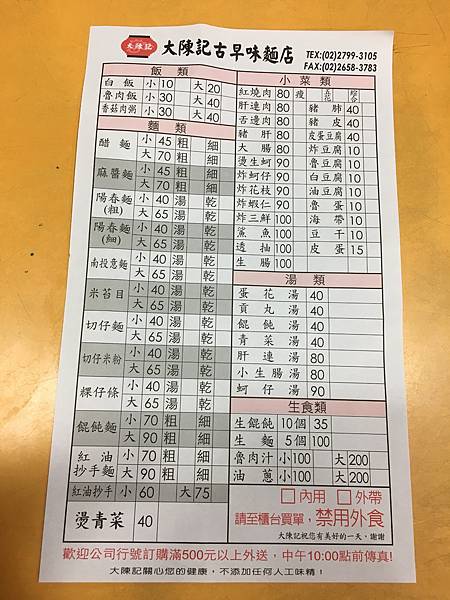 大陳記
大陳記古早味麵店
TEX:(02)2799-3105
FAX:(02)2658-3783
飯 類
白飯 小10 大20
魯肉飯 小30 大40
香菇肉粥 小30 大40
麵 類
醋麵 小 45 粗 細
大 70 粗 細
麻醬麵 小 45 粗 細
大 70 粗 細
陽春麵(粗) 小 40 湯 乾
大 65 湯 乾
陽春麵(細) 小 40 湯 乾
大 65 湯 乾
南投意麵 小 40 湯 乾
大 65 湯 乾
米苔目 小 40 湯 乾
大 65 湯 乾
切仔麵 小 40 湯 乾
大 65 湯 乾
切仔米粉 小 40 湯 乾
大 65 湯 乾
粿仔條 小 40 湯 乾
大 65 湯 乾
餛飩麵 小 70 粗 細
大 90 粗 細
紅油抄手麵 小 70 粗 細
大 90 粗 細
紅油抄手 小 60 大75
燙青菜 40
小 菜 類
紅燒肉 80 瘦 五花 綜合
肝連肉 80 豬肺 40
舌邊肉 80 豬皮 40
豬肝 80 皮蛋豆腐 40
大腸 80 炸豆腐 10
燙生蚵 90 魯豆腐 10
炸蚵仔 90 白豆腐 10
炸花枝 90 油豆腐 10
炸蝦仁 90 魯蛋 10
炸三鮮 100 海帶 10
鯊魚 100 豆干 10
透抽 100 皮蛋 15
生腸 100
湯 類
蛋花湯 40
貢丸湯 40
餛飩湯 40
青菜湯 40
肝連湯 80
小生腸湯 80
蚵仔湯 90
生食類
生餛飩 10個 35
生麵 5個 100
魯肉汁 小100 大200
油蔥 小100 大200
□內用 □外帶
請至櫃台買單，禁用外食
大陳記祝您有美好的一天，謝謝
歡迎公司行號訂購滿500元以上外送，中午10:00點前傳真!
大陳記關心您的健康，不添加任何人工味精！